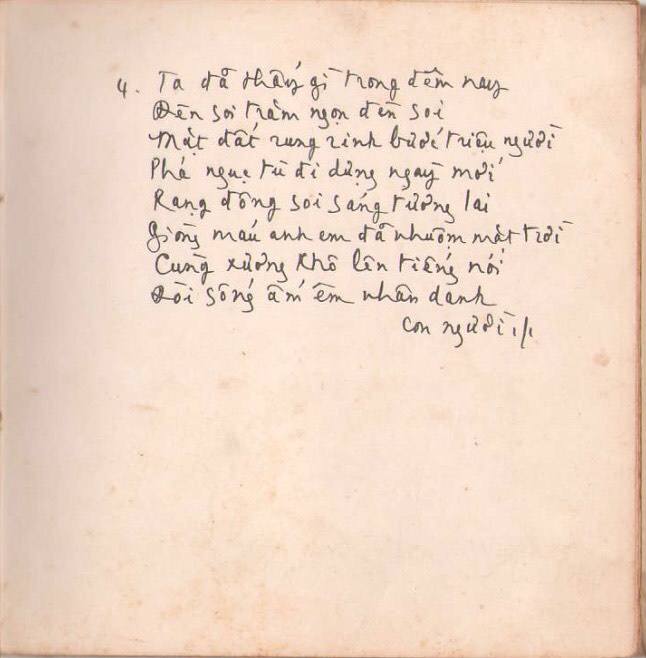 4. Ta đã thấy gì trong đêm nay
Đèn soi trăm ngọn đèn soi
Mặt đất rung rinh bước triệu người
Phá ngục tù đi dựng ngày mới
Rạng đông soi sáng tương lai
Giòng máu anh em đã nhuộm mặt trời
Cùng xương khô lên tiếng nói
Đời sống ấm êm nhân danh
con người ./.